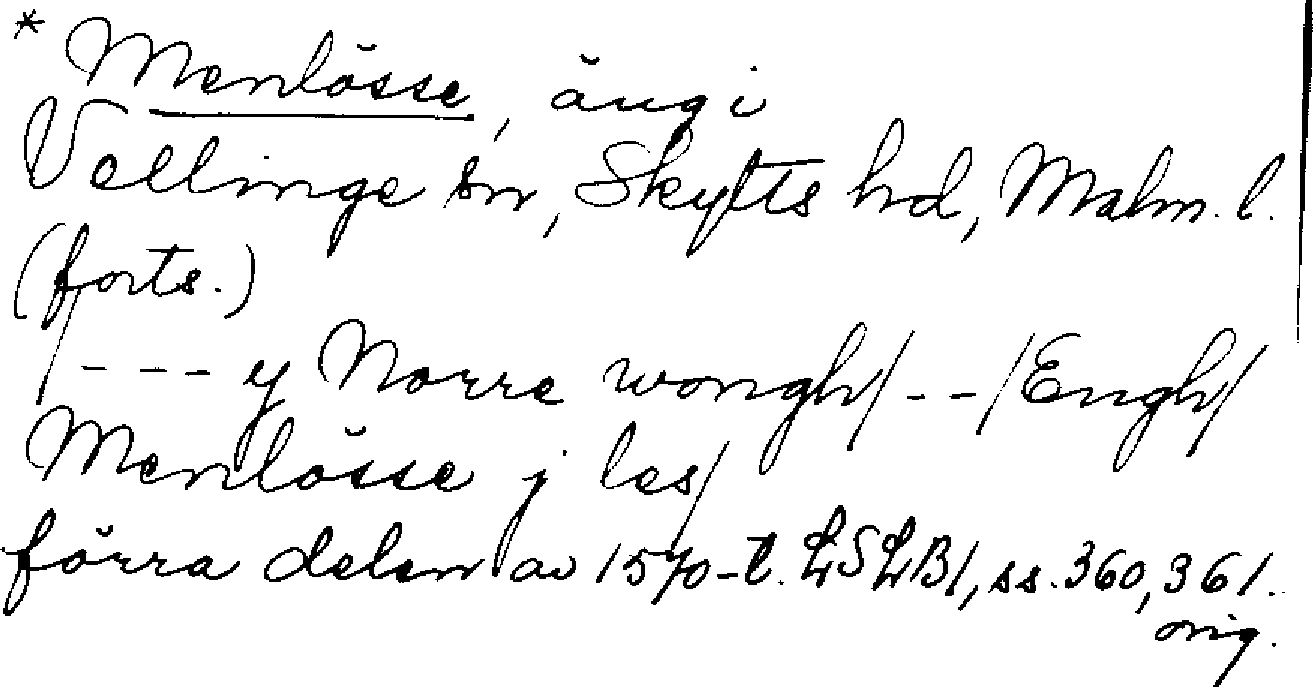 * Menlösse, äng i
Vellinge sn, Skytts hd, Malm. l.
(forts.)
/- - - y Norre wongh/ - - /Engh/
Menlösse j les/
förra delen av 1570-t. LSLB1, ss. 360, 361.
orig.